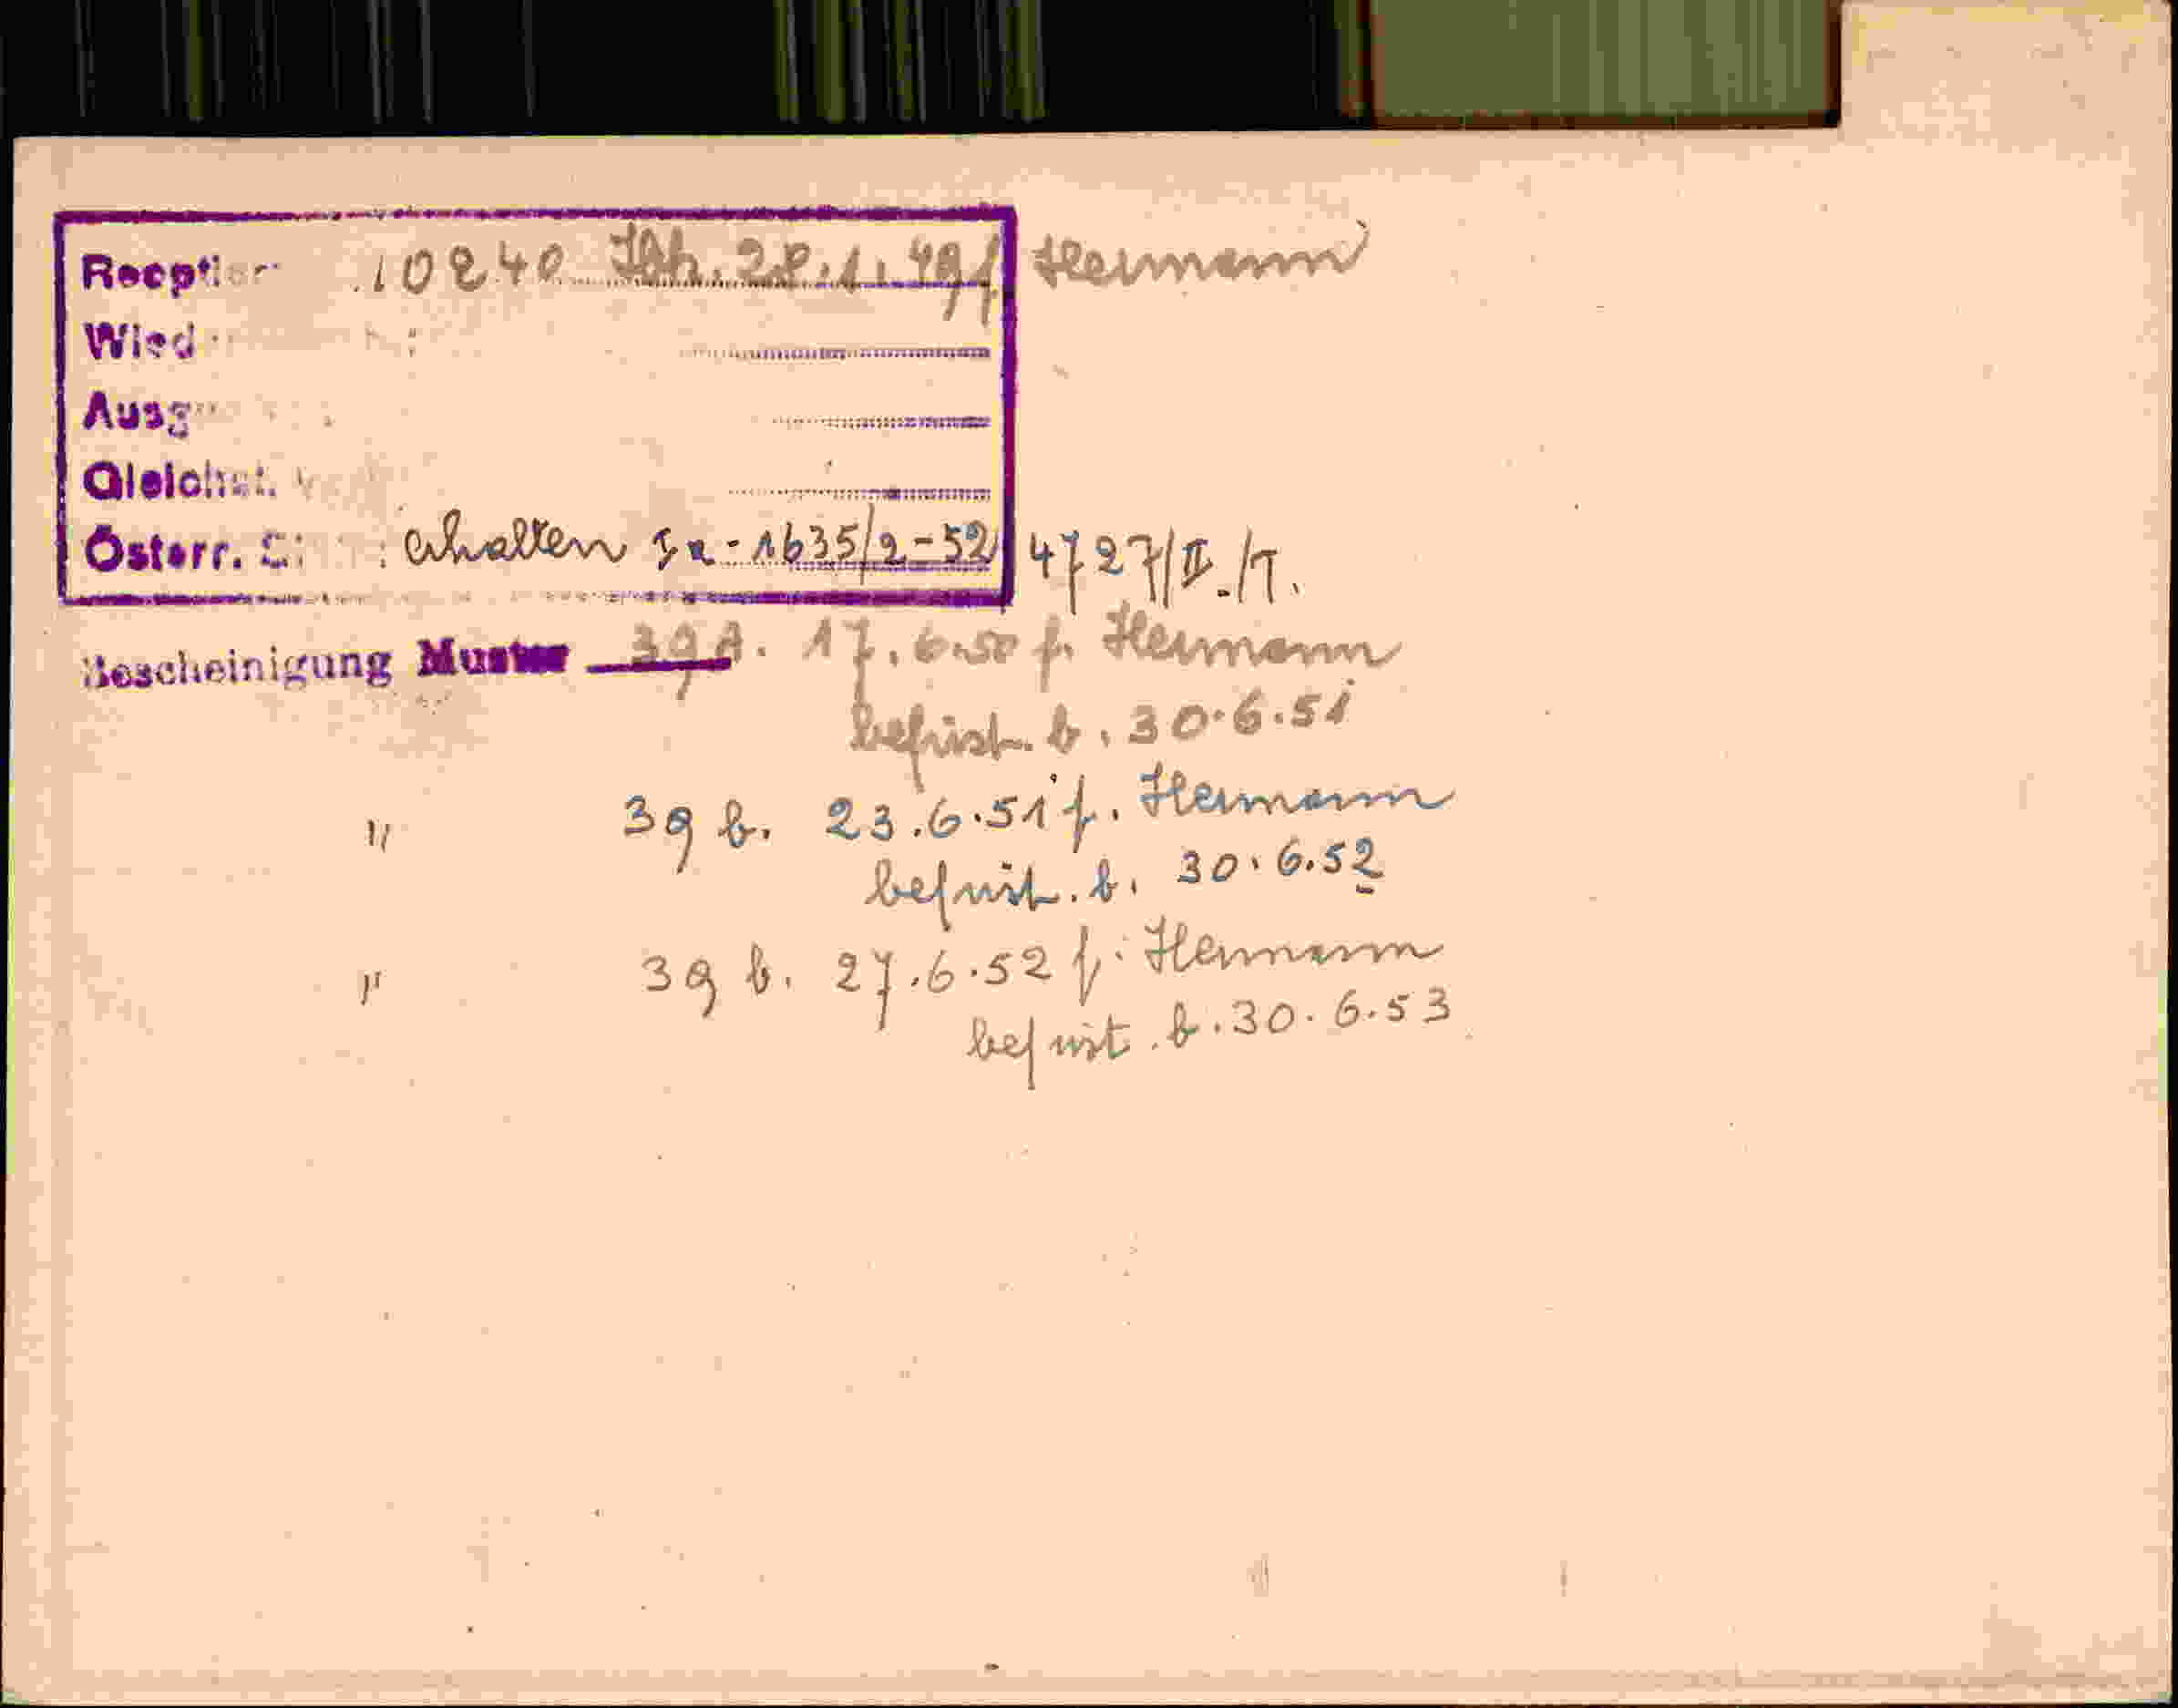 10240 28.1.49 f Hermann
Wied
Ausg
Gleichst.
Österr. : erhalten Ia-1635/2-52 4727/II./T.
Bescheinigung Muster 39 A. 17.6.50 f. Hermann
befrist. b. 30.6.51
" 39 b. 23.6.51 f. Hermann
befrist. b. 30.6.52
" 39 b. 27.6.52 f. Hermann
befrist. b. 30.6.53